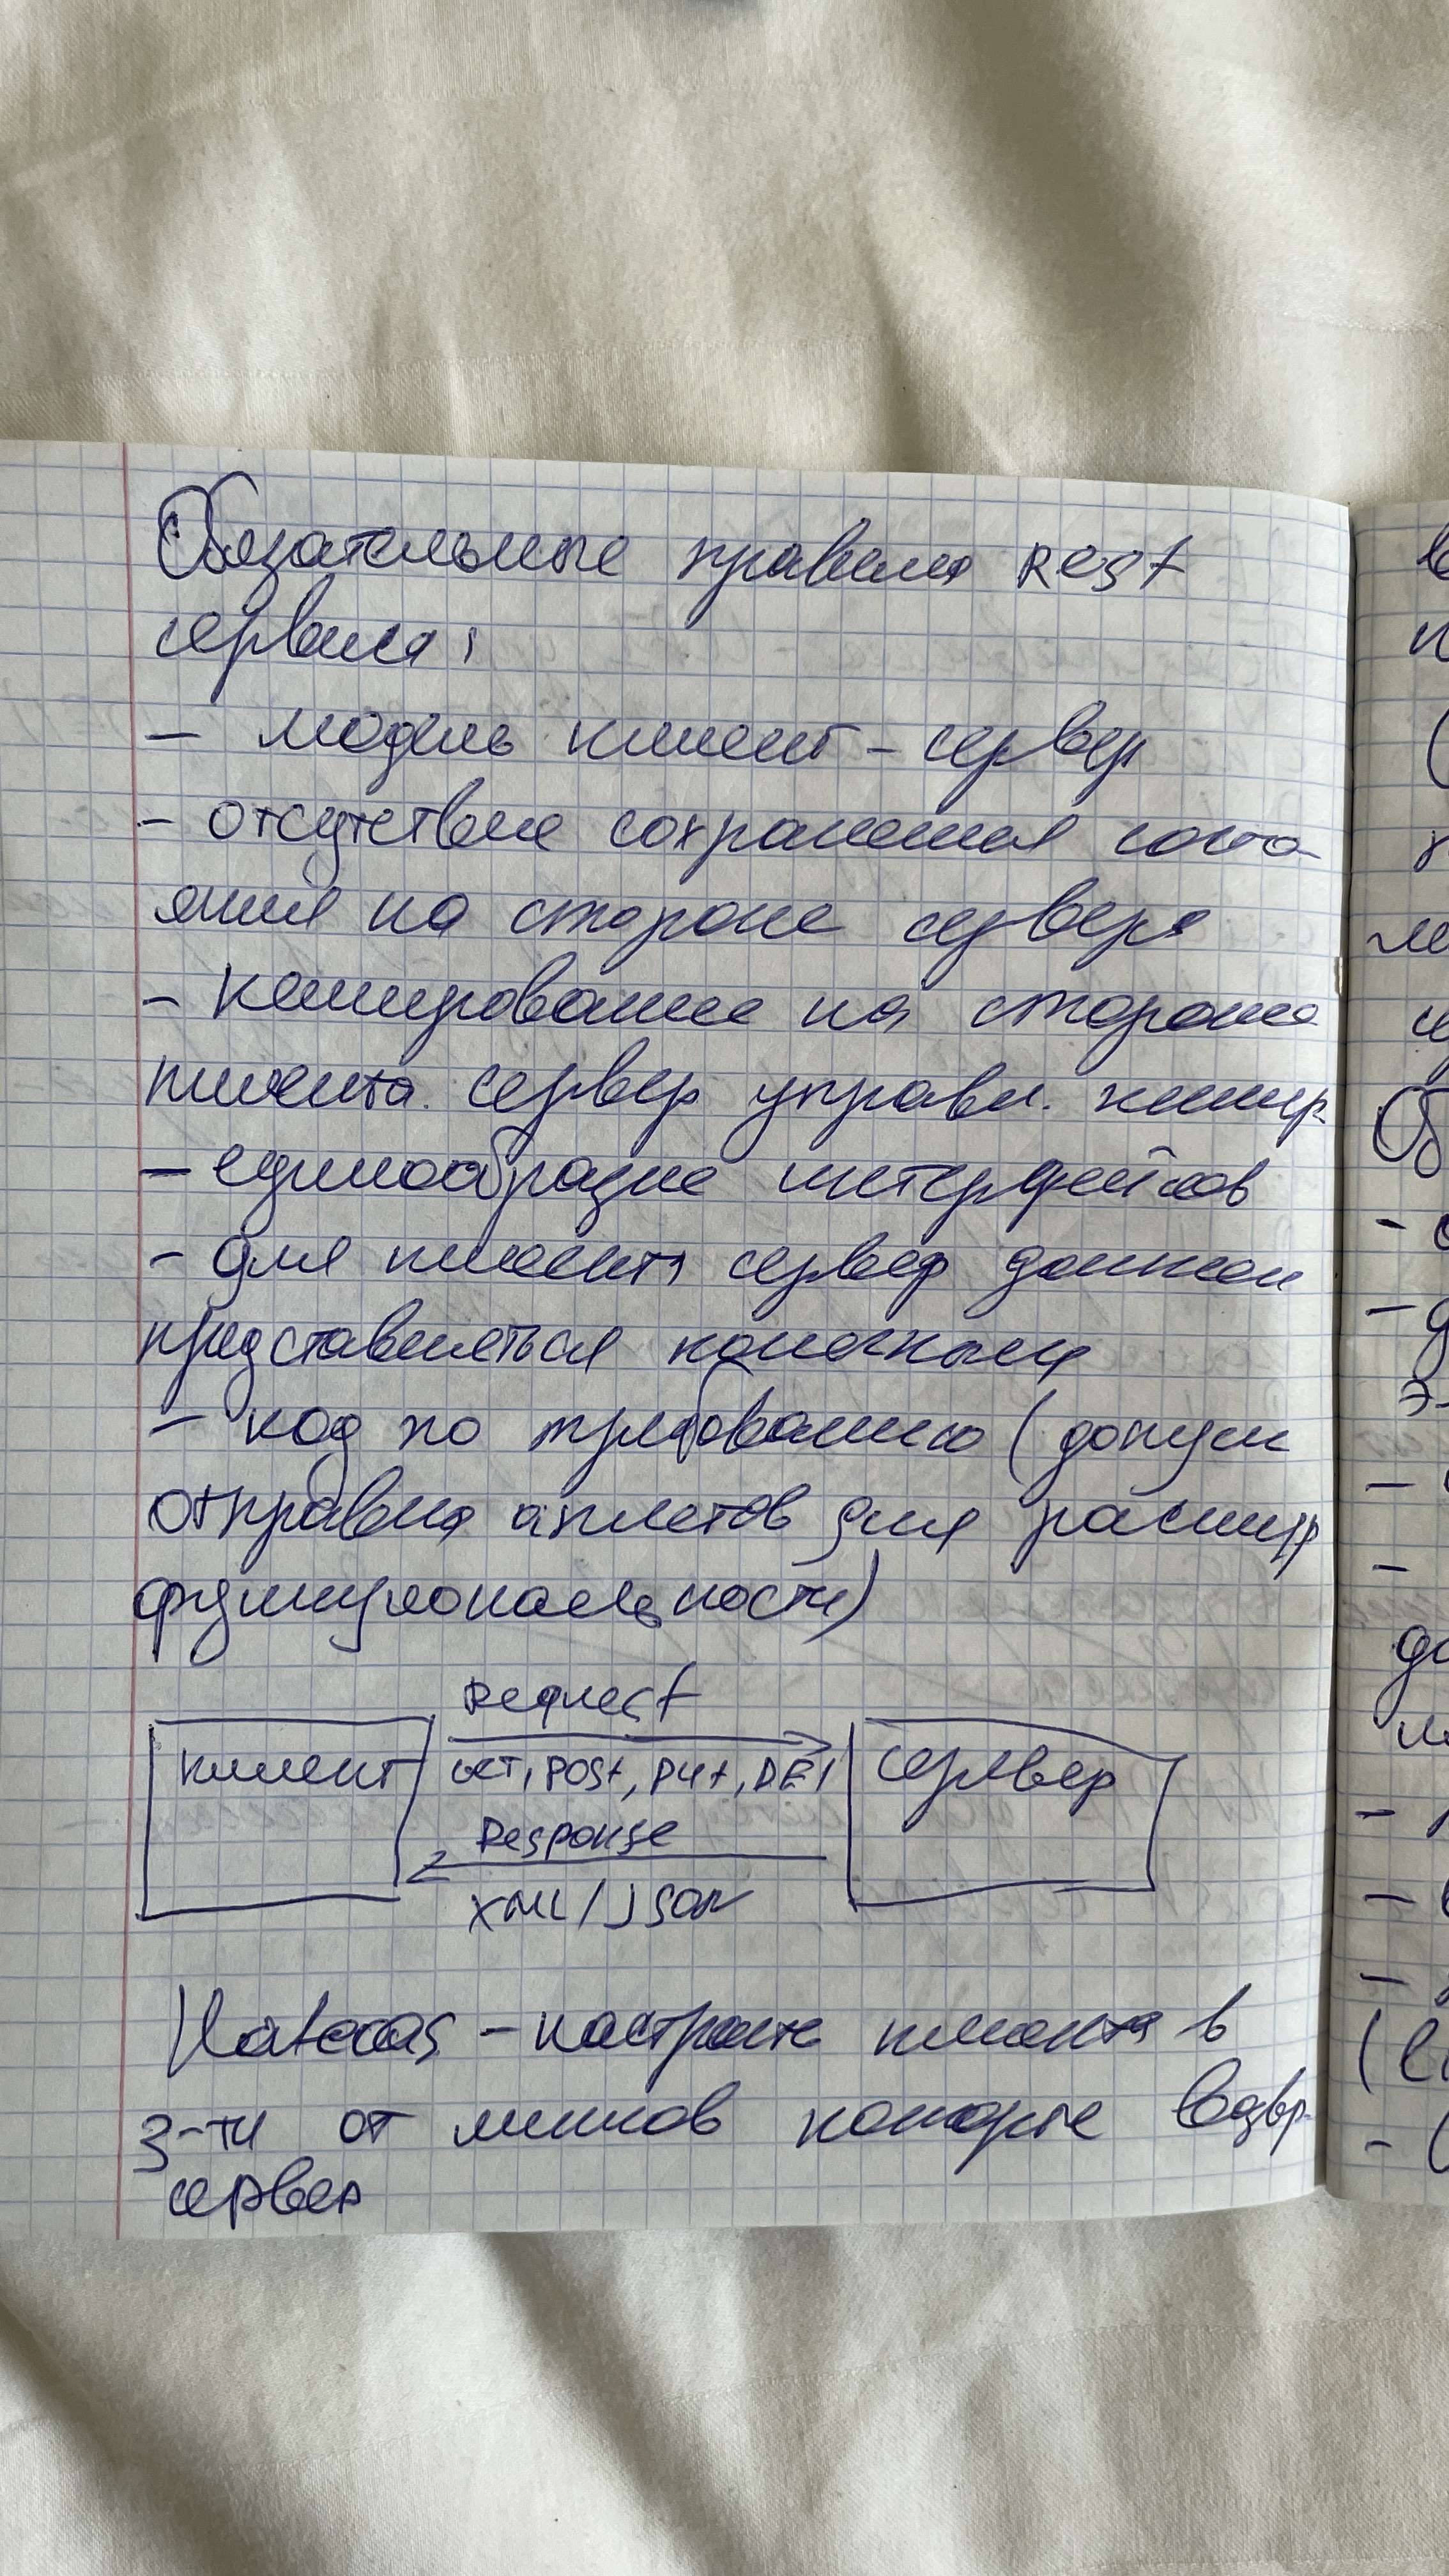 Обязательные правила REST
сервиса:
- модель клиент-сервер
- отсутствие сохранения состо
яния на стороне сервера
- кеширование на стороне
клиента. сервер управл. кешир
- единообразие интерфейсов
- для клиента сервер должен
представляться конечным
- код по требованию (допуск
отправка аплетов для расшир
функциональности)
Request
клиент GET, POST, PUT, DEL сервер
Response
XML/JSON
Hateoas - настроить клиента в
з-ти от линков которые возвр.
сервер